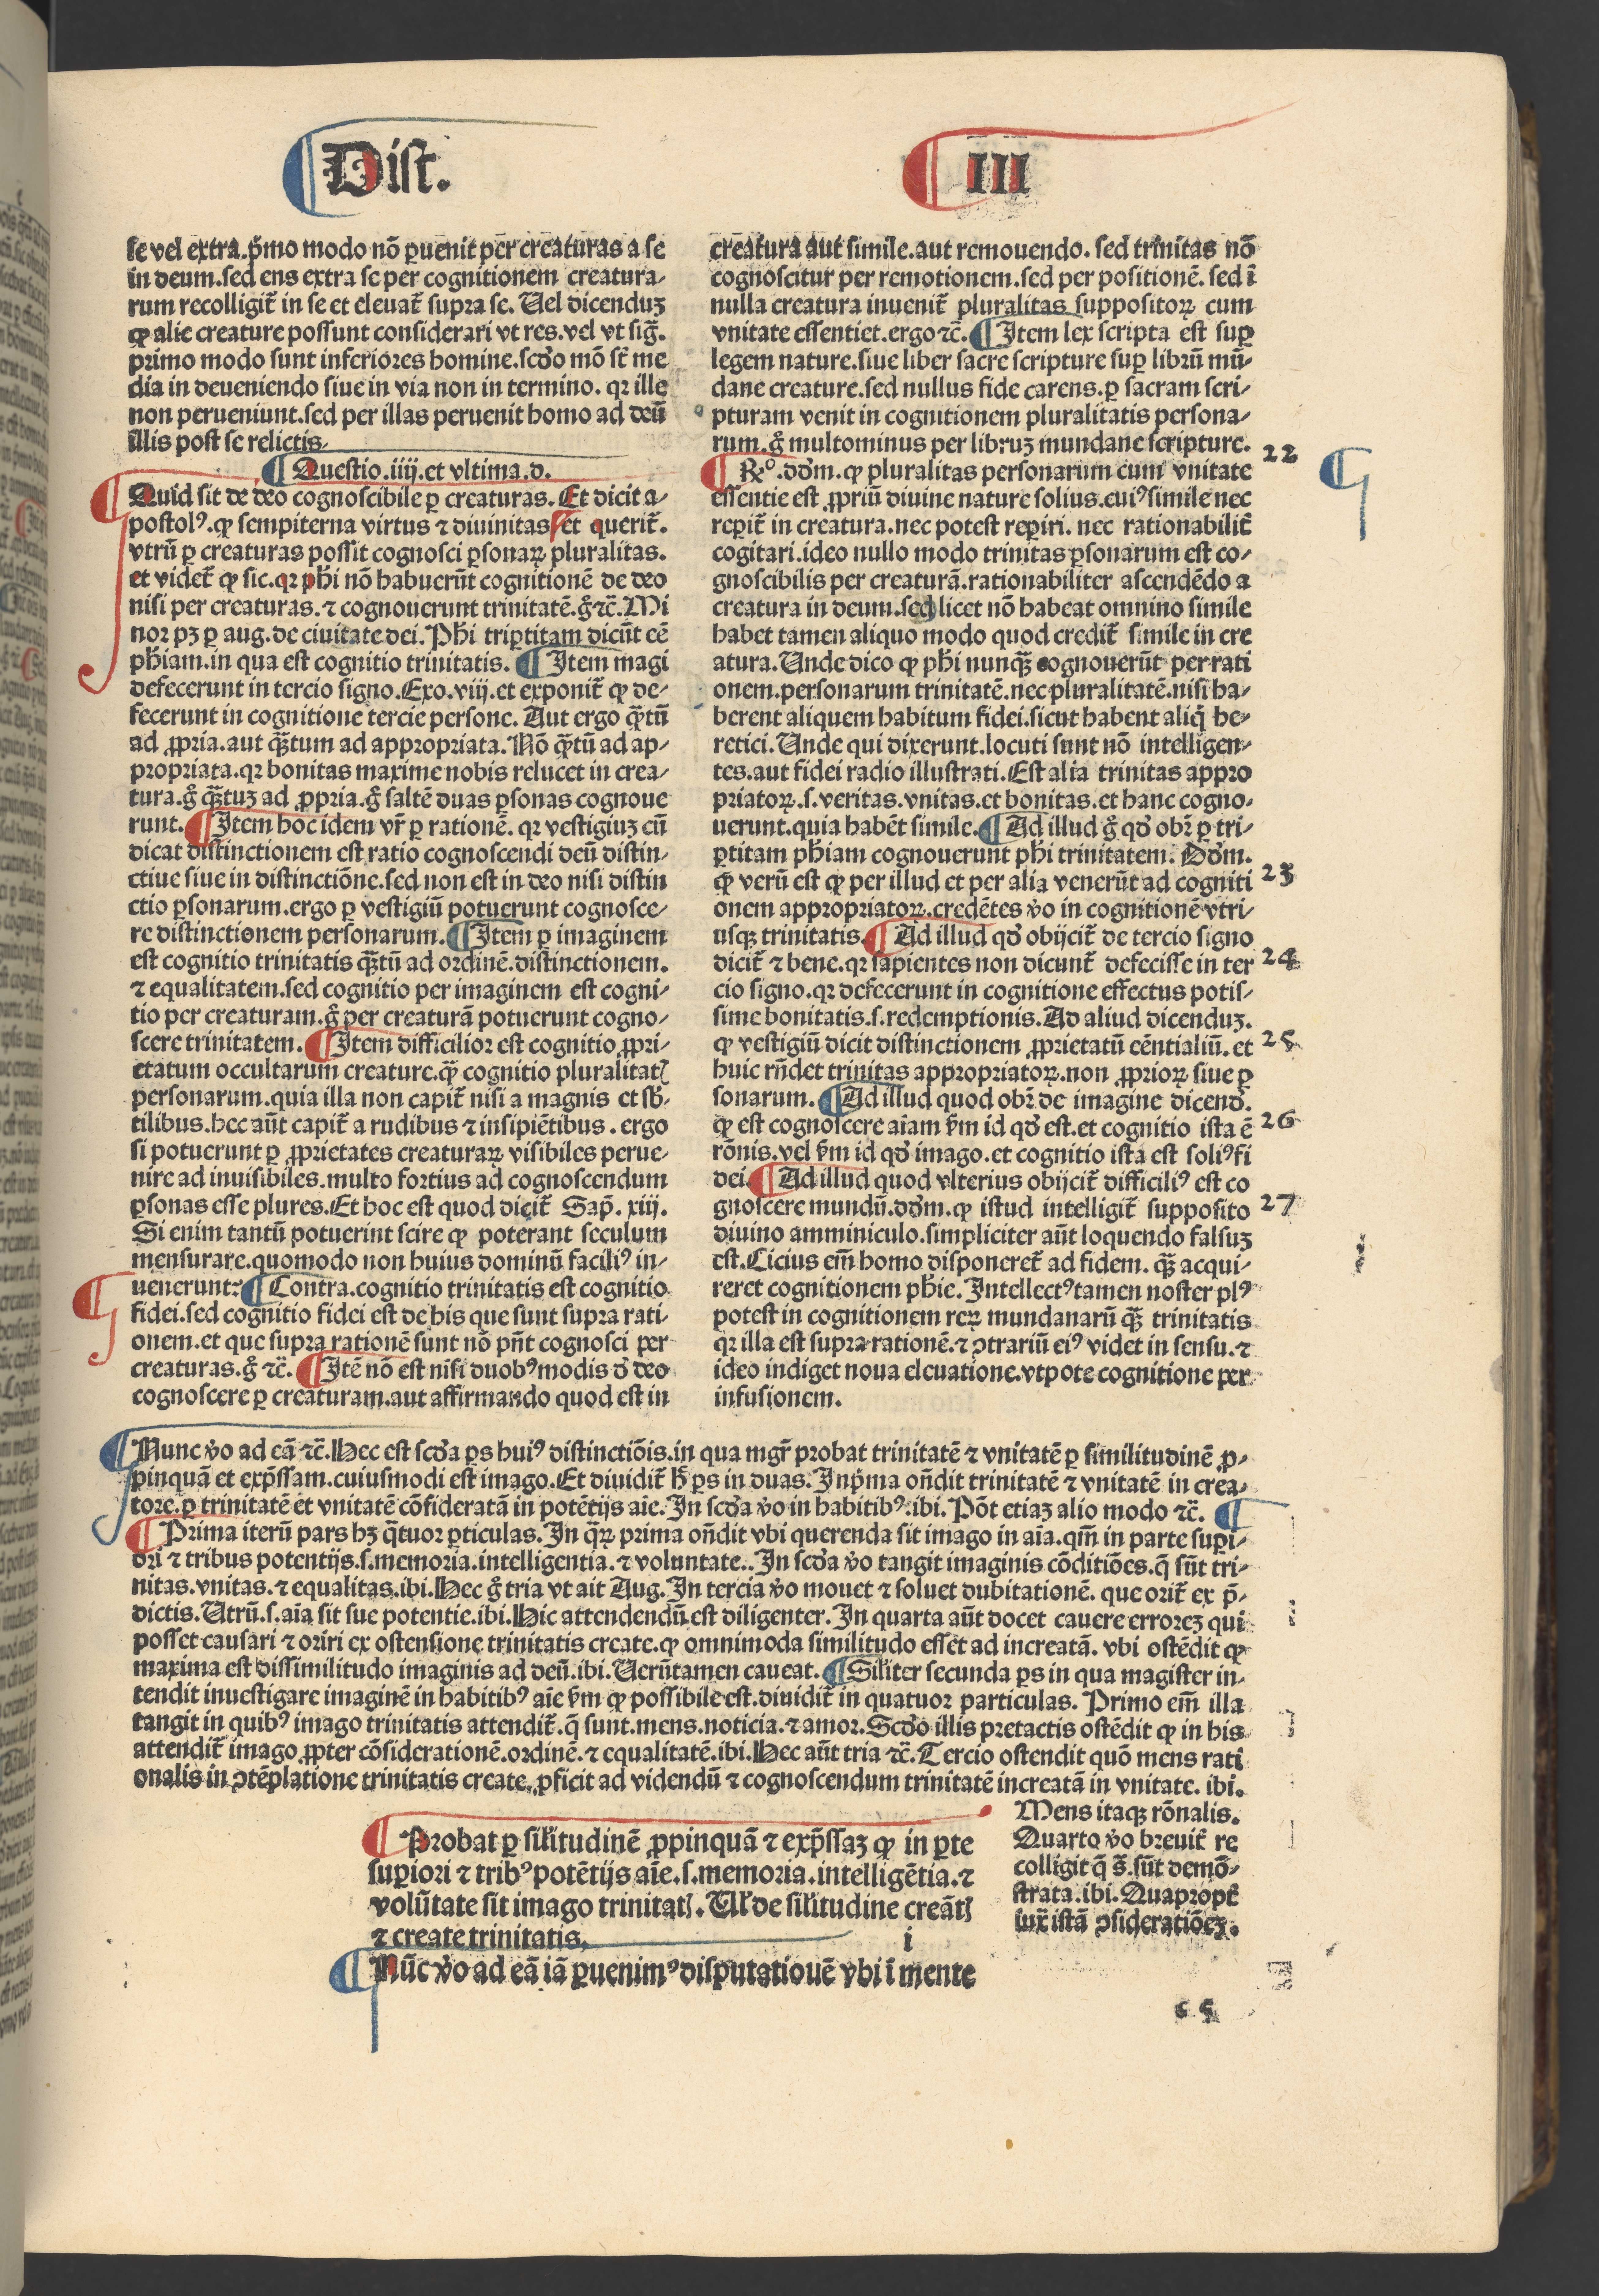 Dist.
III
se vel extra.p̃mo modo nõ ꝑuenit per creaturas a se
in deum.sed ens extra se per cognitionem creatura-
rum recolligit̃ in se et eleuat̃ supra se. Uel dicenduꝫ
ꝙ alie creature possunt considerari vt res.vel vt sig̃.
primo modo sunt inferiores homine.scd̃o mõ st̃ me
dia in deueniendo siue in via non in termino. qꝛ ille
non perueniunt.sed per illas peruenit homo ad deũ
illis post se relictis.
¶ Questio.iiij.et vltima.d.
Quid sit de deo cognoscibile ꝑ creaturas. Et dicit a-
postolꝰ.ꝙ sempiterna virtus ⁊ diuinitas et querit̃.
vtrũ ꝑ creaturas possit cognosci ꝑsonaꝝ pluralitas.
et videt̃ ꝙ sic.qꝛ pħi nõ habuerũt cognitionẽ de deo
nisi per creaturas.⁊ cognouerunt trinitatẽ.g̊ ⁊c̃. Mi
noꝛ pꝫ ꝑ aug.de ciuitate dei. Pħi triꝑtitam dicũt eẽ
pħiam.in qua est cognitio trinitatis. ¶ Item magi
defecerunt in tercio signo.Exo.viij.et exponit̃ ꝙ de-
fecerunt in cognitione tercie persone. Aut ergo q̃tũ
ad ꝓpria.aut q̃tum ad appropriata. Nõ q̃tũ ad ap-
propriata.qꝛ bonitas maxime nobis relucet in crea-
tura.g̊ q̃tuꝫ ad ꝓpria.g̊ saltẽ duas ꝑsonas cognoue
runt. ¶ Item hoc idem vr̃ ꝑ rationẽ. qꝛ vestigiuꝫ cũ
dicat distinctionem est ratio cognoscendi deũ distin-
ctiue siue in distinctiõne.sed non est in deo nisi distin
ctio ꝑsonarum.ergo ꝑ vestigiũ potuerunt cognosce-
re distinctionem personarum. ¶ Item ꝑ imaginem
est cognitio trinitatis q̃tũ ad ordinẽ.distinctionem.
⁊ equalitatem.sed cognitio per imaginem est cogni-
tio per creaturam.g̊ per creaturã potuerunt cogno-
scere trinitatem. ¶ Item difficilior est cognitio ꝓpri-
etatum occultarum creature.q̃ cognitio pluralitatꝭ
personarum.quia illa non capit̃ nisi a magnis et sb̃-
tilibus.hec aũt capit̃ a rudibus ⁊ insipiẽtibus. ergo
si potuerunt ꝑ ꝓprietates creaturaꝝ visibiles perue-
nire ad inuisibiles.multo fortius ad cognoscendum
ꝑsonas esse plures.Et hoc est quod dicit̃ Sap̃. xiij.
Si enim tantũ potuerint scire ꝙ poterant seculum
mensurare.quomodo non huius dominũ faciliꝰ in-
uenerunt? ¶ Contra.cognitio trinitatis est cognitio
fidei.sed cognitio fidei est de his que sunt supra rati-
onem.et que supra rationẽ sunt nõ pñt cognosci per
creaturas.g̊ ⁊c̃. ¶ Itẽ nõ est nisi duobꝰ modis d̃ deo
cognoscere ꝑ creaturam.aut affirmando quod est in
creatura aut simile.aut remouendo. sed trinitas nõ
cognoscitur per remotionem.sed per positionẽ. sed ĩ
nulla creatura inuenit̃ pluralitas suppositoꝝ cum
vnitate essentiet.ergo ⁊c̃. ¶ Item lex scripta est suꝑ
legem nature.siue liber sacre scripture suꝑ librũ mũ-
dane creature.sed nullus fide carens.ꝑ sacram scri-
pturam venit in cognitionem pluralitatis persona-
rum.g̊ multominus per libruꝫ mundane scripture.
¶ ℞º.dd̃m.ꝙ pluralitas personarum cum vnitate 22
essentie est ꝓpriũ diuine nature solius.cuiꝰ simile nec
reꝑit̃ in creatura.nec potest reꝑiri. nec rationabilit̃
cogitari.ideo nullo modo trinitas ꝑsonarum est co-
gnoscibilis per creaturã.rationabiliter ascendẽdo a
creatura in deum.sed licet nõ habeat omnino simile
habet tamen aliquo modo quod credit̃ simile in cre
atura. Unde dico ꝙ pħi nunq̃ cognouerũt per rati
onem.personarum trinitatẽ.nec pluralitatẽ.nisi ha-
berent aliquem habitum fidei.sicut habent aliq̃ he-
retici. Unde qui dixerunt.locuti sunt nõ intelligen-
tes.aut fidei radio illustrati. Est alia trinitas appro
priatoꝝ.s.veritas.vnitas.et bonitas.et hanc cogno-
uerunt.quia habẽt simile. ¶ Ad illud g̊ qd̃ obꝛ̃ ꝑ tri-
ꝑtitam pħiam cognouerunt pħi trinitatem. Dd̃m.
ꝙ verũ est ꝙ per illud et per alia venerũt ad cogniti 23
onem appropriatoꝝ.credẽtes ṽo in cognitionẽ vtri-
usqꝫ trinitatis. ¶ Ad illud qd̃ obijcit̃ de tercio signo
dicit̃ ⁊ bene.qꝛ sapientes non dicunt̃ defecisse in ter 24
cio signo.qꝛ defecerunt in cognitione effectus potis-
sime bonitatis.s.redemptionis. Ad aliud dicenduꝫ.
ꝙ vestigiũ dicit distinctionem ꝓprietatũ eẽntialiũ. et 25
huic rñdet trinitas appropriatoꝝ.non ꝓprioꝝ siue ꝑ
sonarum. ¶ Ad illud quod obꝛ̃ de imagine dicend̃.
ꝙ est cognoscere aĩam ẜm id qd̃ est.et cognitio ista ẽ 26
rõnis.vel ẜm id qd̃ imago.et cognitio ista est soliꝰ fi
dei. ¶ Ad illud quod vlterius obijcit̃ difficiliꝰ est co
gnoscere mundũ.dd̃m.ꝙ istud intelligit̃ supposito 27
diuino amminiculo.simpliciter aũt loquendo falsuꝫ
est. Cicius em̃ homo disponeret̃ ad fidem. q̃ acqui-
reret cognitionem pħie. Intellectꝰ tamen noster plꝰ
potest in cognitionem reꝝ mundanarũ q̃ trinitatis
qꝛ illa est supra rationẽ.⁊ ꝯtrariũ eiꝰ videt in sensu.⁊
ideo indiget noua eleuatione.vtpote cognitione per
infusionem.
¶ Nunc ṽo ad eã ⁊c̃. Hec est scd̃a ꝑs huiꝰ distinctiõis.in qua mgr̃ probat trinitatẽ ⁊ vnitatẽ ꝑ similitudinẽ ꝓ-
pinquã et exp̃ssam.cuiusmodi est imago. Et diuidit̃ h̃ ꝑs in duas. In p̃ma oñdit trinitatẽ ⁊ vnitatẽ in crea-
tore.ꝑ trinitatẽ et vnitatẽ cõsideratã in potẽtijs aĩe. In scd̃a ṽo in habitibꝰ.ibi. Põt etiaꝫ alio modo ⁊c̃. ¶
¶ Prima iterũ pars hꝫ q̃tuor ꝑticulas. In q̃ꝝ prima oñdit vbi querenda sit imago in aĩa.qm̃ in parte suꝑi-
ori ⁊ tribus potentijs.s.memoria.intelligentia.⁊ voluntate.. In scd̃a ṽo tangit imaginis cõditiões.q̃ sũt tri-
nitas.vnitas.⁊ equalitas.ibi. Hec g̊ tria vt ait Aug. In tercia ṽo mouet ⁊ soluet dubitationẽ. que orit̃ ex p̃-
dictis. Utrũ.s.aĩa sit sue potentie.ibi. Hic attendendũ est diligenter. In quarta aũt docet cauere erroreꝫ qui
posset causari ⁊ oriri ex ostensione trinitatis create.ꝙ omnimoda similitudo esset ad increatã. vbi ostẽdit ꝙ
maxima est dissimilitudo imaginis ad deũ.ibi. Uerũtamen caueat. ¶ Sil̃iter secunda ꝑs in qua magister in-
tendit inuestigare imaginẽ in habitibꝰ aĩe ẜm ꝙ possibile est.diuidit̃ in quatuor particulas. Primo em̃ illa
tangit in quibꝰ imago trinitatis attendit̃.q̃ sunt.mens.noticia.⁊ amor. Scd̃o illis pretactis ostẽdit ꝙ in his
attendit̃ imago ꝓpter cõsiderationẽ.ordinẽ.⁊ equalitatẽ.ibi. Hec aũt tria ⁊c̃. Tercio ostendit quõ mens rati
onalis in ꝯtẽplatione trinitatis create ꝓficit ad videndũ ⁊ cognoscendum trinitatẽ increatã in vnitate. ibi.
Mens itaqꝫ rõnalis.
Quarto ṽo breuit̃ re
colligit q̃ s̃.sũt demõ-
strata.ibi. Quapropt̃
iux̃ istã ꝯsideratiõeꝫ.
¶ Probat ꝑ sil̃itudinẽ ꝓpinquã ⁊ exp̃ssaꝫ ꝙ in ꝑte
suꝑiori ⁊ tribꝰ potẽtijs aĩe.s.memoria.intelligẽtia.⁊
volũtate sit imago trinitatꝭ. Ul̃ de sil̃itudine creãtꝭ
⁊ create trinitatis. i
¶ Nũc ṽo ad eã iã ꝑuenimꝰ disputatiouẽ vbi ĩ mente